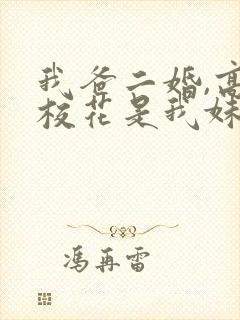 我爸二婚,高
校花是我妹
冯再雷